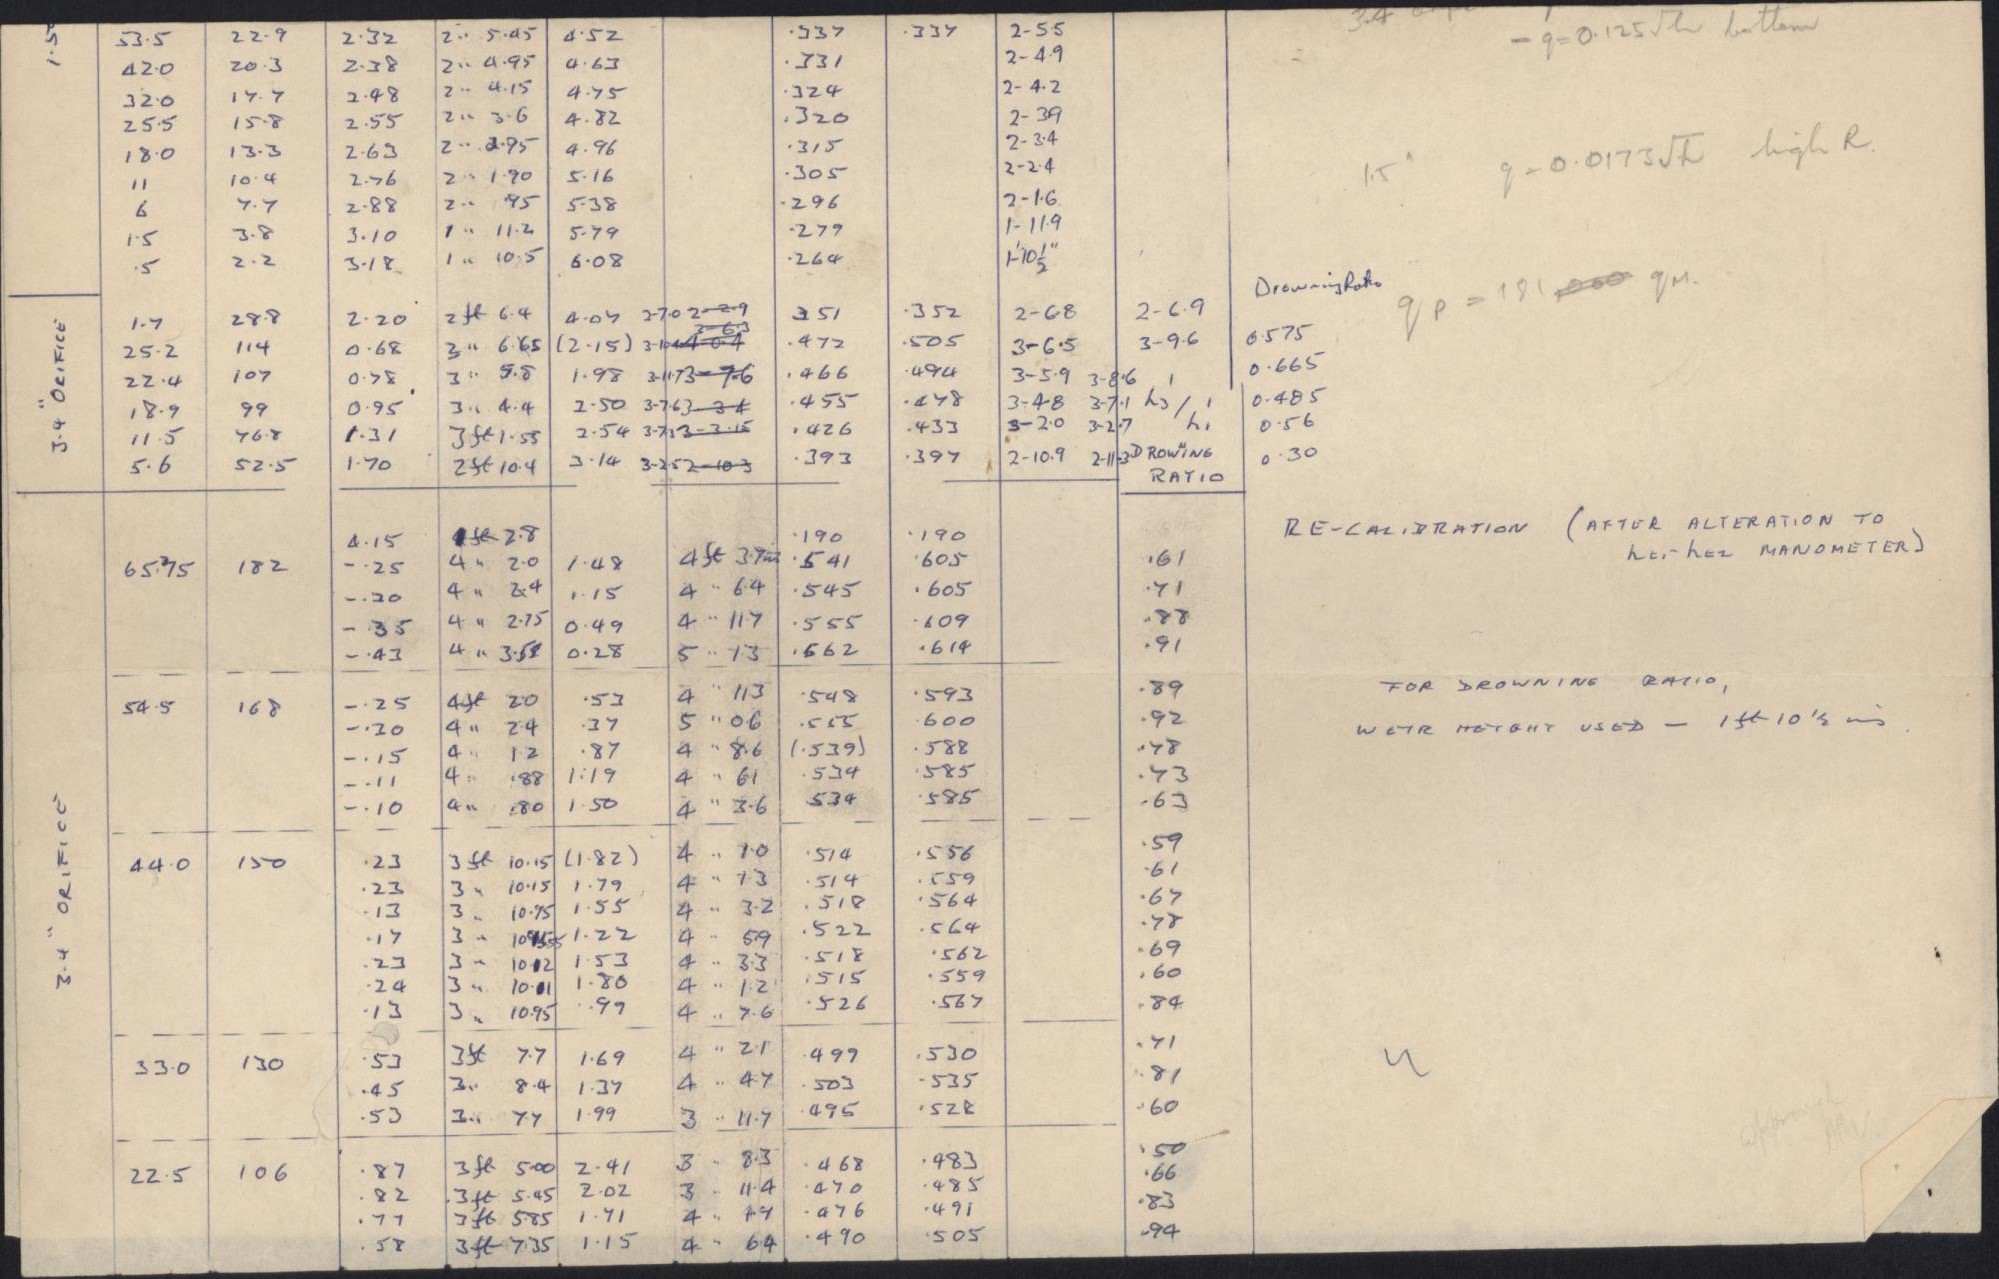 1.5"
53.5 22.9 2.32 2" 5.45 4.52 .337 .337 2-5.5
42.0 20.3 2.38 2" 4.95 4.63 .331 2-4.9
32.0 17.7 2.48 2" 4.15 4.75 .324 2-4.2
25.5 15.8 2.55 2" 3.6 4.82 .320 2-39
18.0 13.3 2.63 2" 2.95 4.96 .315 2-3.4
11 10.4 2.76 2" 1.90 5.16 .305 2-2.4
6 7.7 2.88 2" .95 5.38 .296 2-1.6
1.5 3.8 3.10 1" 11.2 5.79 .279 1-11.9
.5 2.2 3.18 1" 10.5 6.08 .264 1'-10½"
3.4
- q=0.125√h bottom
1.5" q=0.0173√h high R.
qp = 181 qM.
Drowning Ratio
3.4" ORIFICE
1.7 28.8 2.20 2ft 6.4 4.07 2-7.0 2-2.9 351 .352 2-6.8 2-6.9
2-6.3
25.2 114 0.68 3" 6.65 (2.15) 4-0.4 .472 .505 3-6.5 3-9.6 0.575
22.4 107 0.78 3" 5.8 1.98 3-11.7 3-7.6 .466 .494 3-5.9 3-8.6 0.665
18.9 99 0.95 3" 4.4 2.50 3-7.6 3-3.4 .455 .478 3-4.8 3-7.1 h3/ 0.485
11.5 76.8 1.31 3ft 1.55 2.54 3-7.1 3-3.15 .426 .433 3-2.0 3-2.7 h1 0.56
5.6 52.5 1.70 2ft 10.4 3.14 3-2.5 2-10.3 .393 .397 2-10.9 2-11.3 DROWING 0.30
RATIO
RE-CALIBRATION (AFTER ALTERATION TO
he1-he2 MANOMETER)
3.4" ORIFICE
4.15 1ft 2.8 .190 .190
65.75 182 -.25 4" 2.0 1.48 4ft 3.7in .541 .605 .61
-.30 4" 2.4 1.15 4" 6.4 .545 .605 .71
-.35 4" 2.75 0.49 4" 11.7 .555 .609 .88
-.43 4" 0.28 5" 1.3 .562 .614 .91
54.5 168 -.25 4ft 2.0 .53 4" 11.3 .548 .593 .89
-.30 4" 2.4 .37 5" 0.6 .555 .600 .92
-.15 4" 1.2 .87 4" 8.6 (.539) .588 .78
-.11 4" .88 1.19 4" 6.1 .534 .585 .73
-.10 4" .80 1.50 4" 3.6 .534 .585 .63
FOR DROWNING RATIO,
WEIR HEIGHT USED - 1ft 10½ ins.
44.0 150 .23 3ft 10.15 (1.82) 4" 1.0 .514 .556 .59
.23 3" 10.15 1.79 4" 1.3 .514 .559 .61
.13 3" 10.75 1.55 4" 3.2 .518 .564 .67
.17 3" 1.22 4" 5.9 .522 .564 .78
.23 3" 10.12 1.53 4" 3.3 .518 .562 .69
.24 3" 10.01 1.80 4" 1.2 .515 .559 .60
.13 3" 10.95 .99 4" 7.6 .526 .567 .84
33.0 130 .53 3ft 7.7 1.69 4" 2.1 .499 .530 .71
.45 3" 8.4 1.37 4" 4.7 .503 .535 .81
.53 3" 7.7 1.99 3" 11.7 .495 .528 .60
22.5 106 .87 3ft 5.00 2.41 3" 8.3 .468 .483 .50
.82 3ft 5.45 2.02 3" 11.4 .470 .485 .66
.77 3ft 5.85 1.71 4" 1.9 .476 .491 .83
.58 3ft 7.35 1.15 4" 6.4 .490 .505 .94